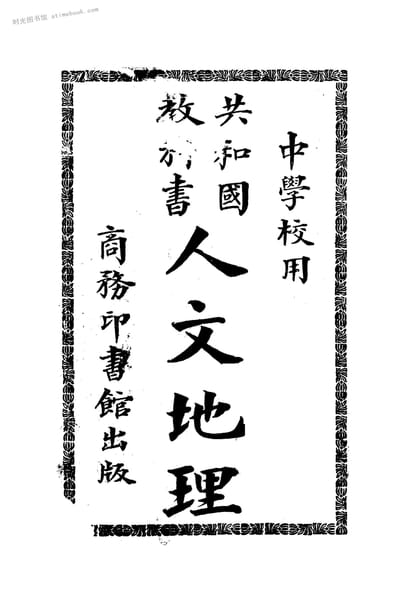 时光图书馆 atimebook.com
中學校用
共和國
教科書
人文地理
商務印書館出版